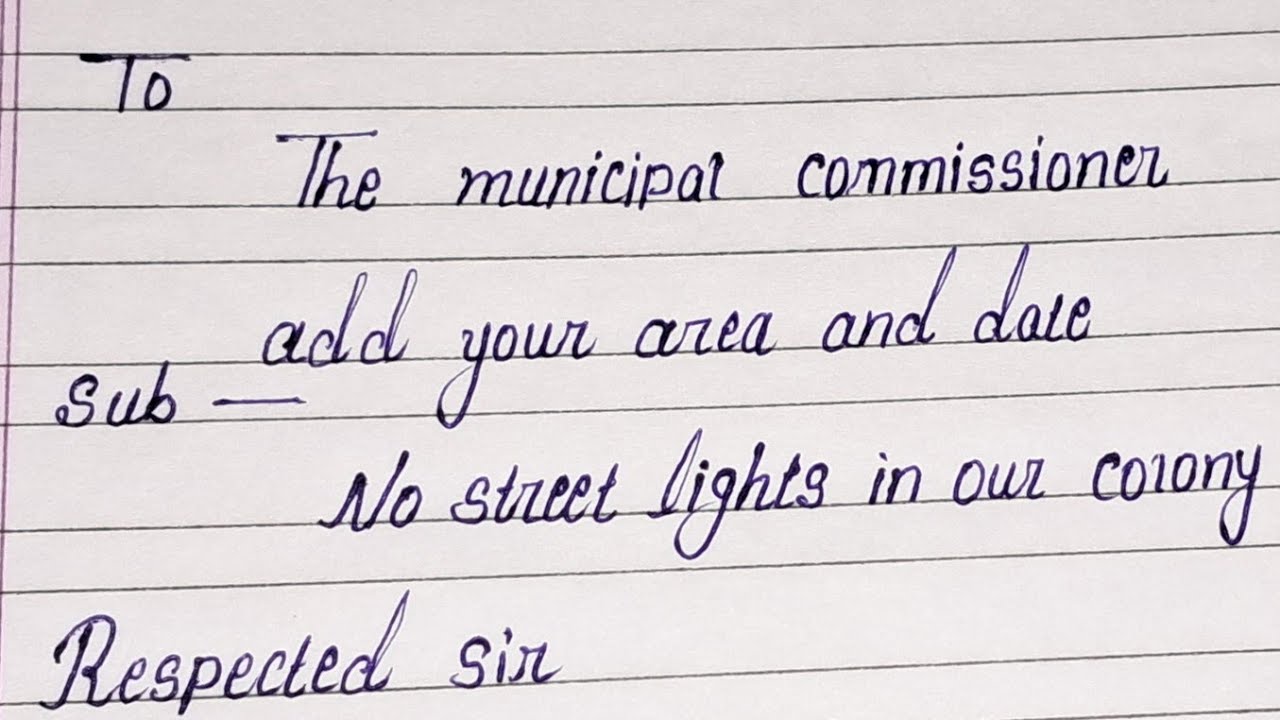 To
The municipal commissioner
add your area and date
Sub —
No street lights in our colony
Respected sir